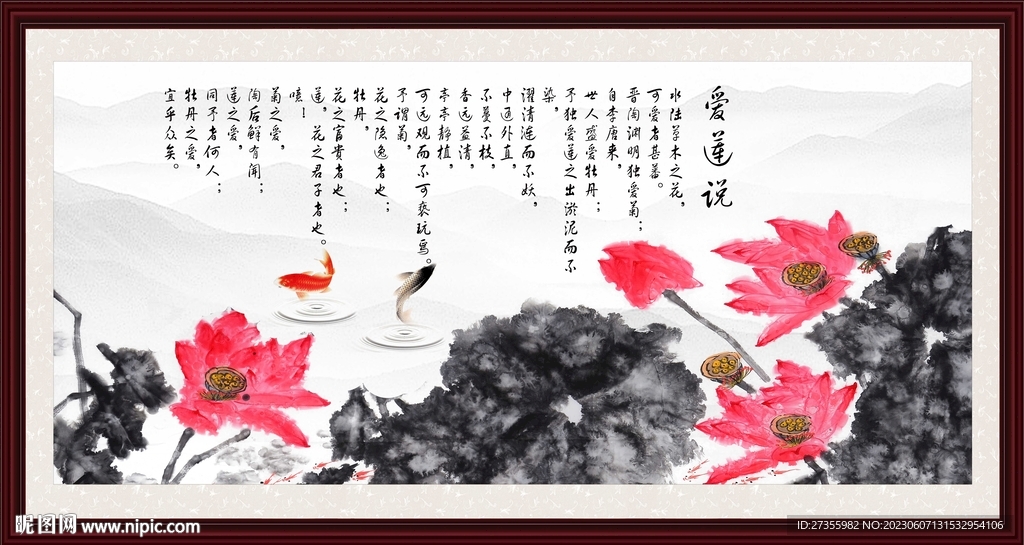 爱莲说
水陆草木之花，
可爱者甚蕃。
晋陶渊明独爱菊；
自李唐来，
世人盛爱牡丹；
予独爱莲之出淤泥而不
染，
濯清涟而不妖，
中通外直，
不蔓不枝，
香远益清，
亭亭静植，
可远观而不可亵玩焉。
予谓菊，
花之隐逸者也；
牡丹，
花之富贵者也；
莲，花之君子者也。
噫！
菊之爱，
陶后鲜有闻；
莲之爱，
同予者何人；
牡丹之爱，
宜乎众矣。
昵图网 www.nipic.com
ID:27355982 NO:20230607131532954106